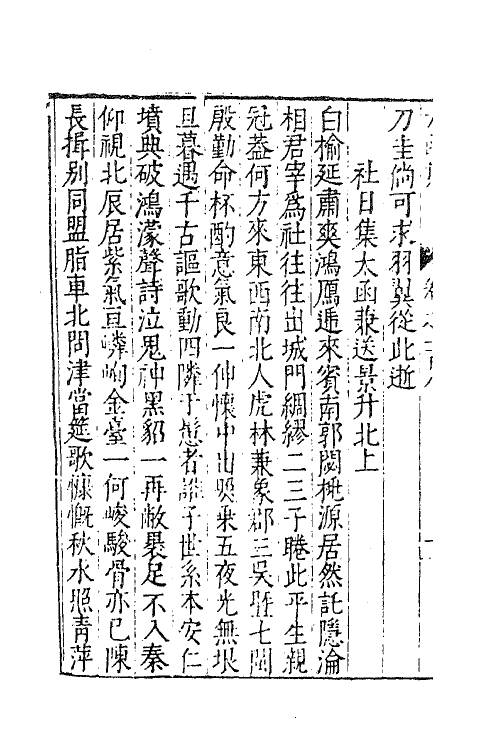 刀圭倘可求羽翼從此逝
社日集太函兼送景升北上
白榆延肅爽鴻鴈遞來賓南郭闢桃源居然託隱淪
相君宰爲社往往出城門綢繆二三子睠此平生親
冠葢何方來東西南北人虎林兼象郡三吳曁七閩
殷勤命杯酌意氣良一伸懷中出照乘五夜光無垠
旦暮遇千古謳歌動四隣于
者
子世系本安仁
墳典破鴻濛聲詩泣鬼神黑貂一再敝裹足不入秦
仰視北辰居紫氣亘嶙峋金臺一何峻駿骨亦已陳
長揖別同盟脂車北問津當筵歌慷慨秋水照青萍